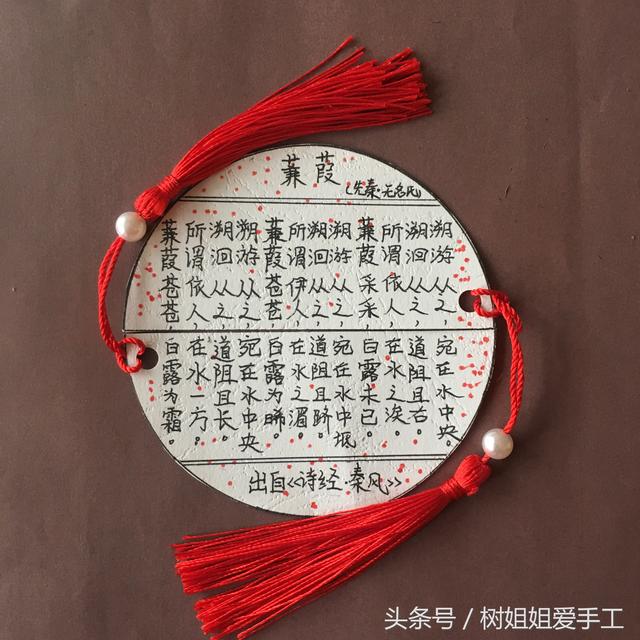 蒹葭
(先秦·无名氏)
蒹葭苍苍,白露为霜。
所谓依人,在水一方。
溯洄从之,道阻且长。
溯游从之,宛在水中央。
蒹葭苍苍,白露为晞。
所谓伊人,在水之湄。
溯洄从之,道阻且跻。
溯游从之,宛在水中坻。
蒹葭采采,白露未已。
所谓依人,在水之涘。
溯洄从之,道阻且右。
溯游从之,宛在水中央。
出自《诗经·秦风》
头条号/树姐姐爱手工